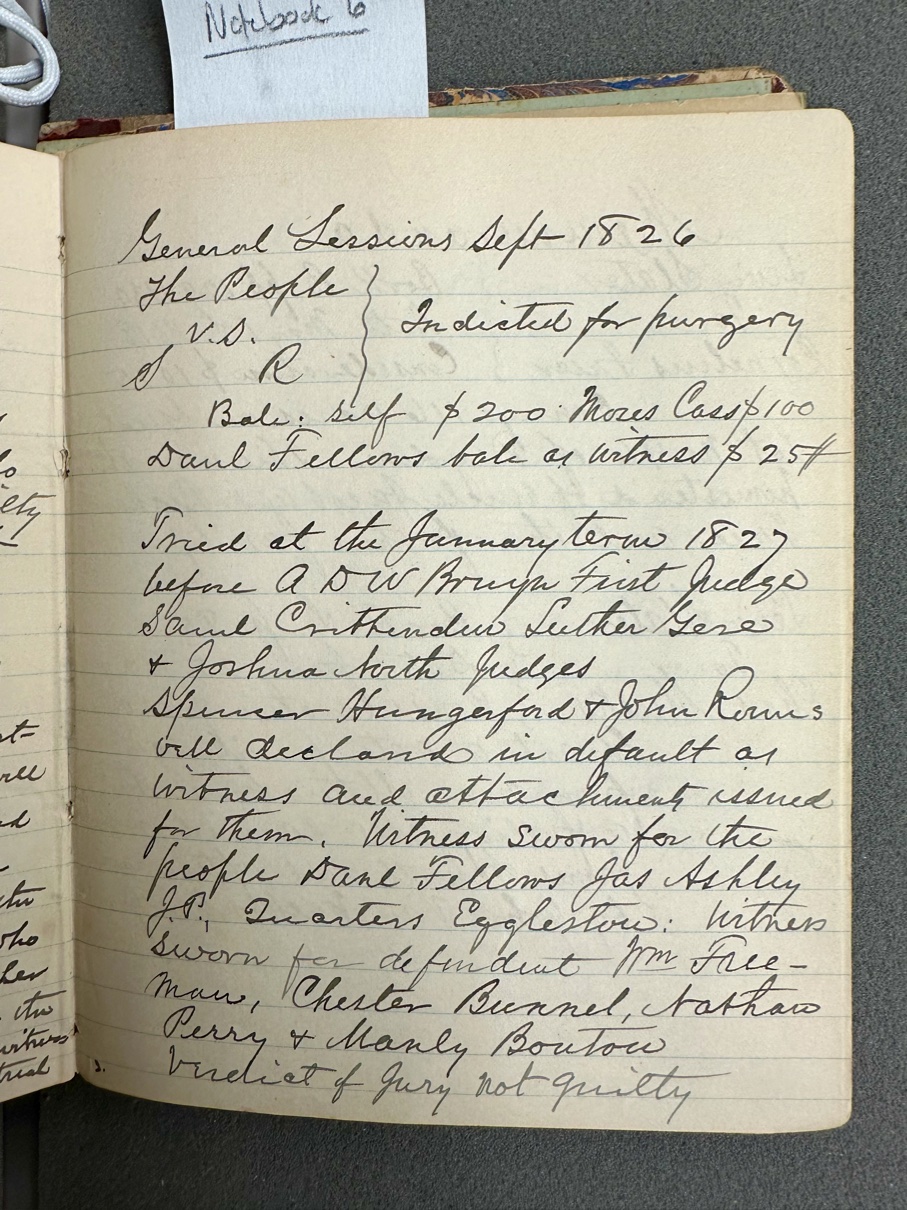 Notebook 6
General Sessions Sept 1826
The People
V.S.
S R
} Indicted for purgery
Bale: self $200 Mozes Cass $100
Danl Fellows bale as witness $25#
Tried at the January term 1827
before A D W Bruyn First Judge
Saml Crittenden Luther Gere
& Joshua North Judges
Spencer Hungerford & John Roums
vell declard in default as
witness and attachments issued
for them. Witness sworn for the
people Danl Fellows Jas Ashley
J.P., Quarters Eggleston: Witness
sworn for defendent Wm Free-
man, Chester Bunnel, Nathan
Perry & Manly Bouton
Verdict of Jury not guilty
lo
elty
st-
vell
ed
who
her
the
witness
trial
s.